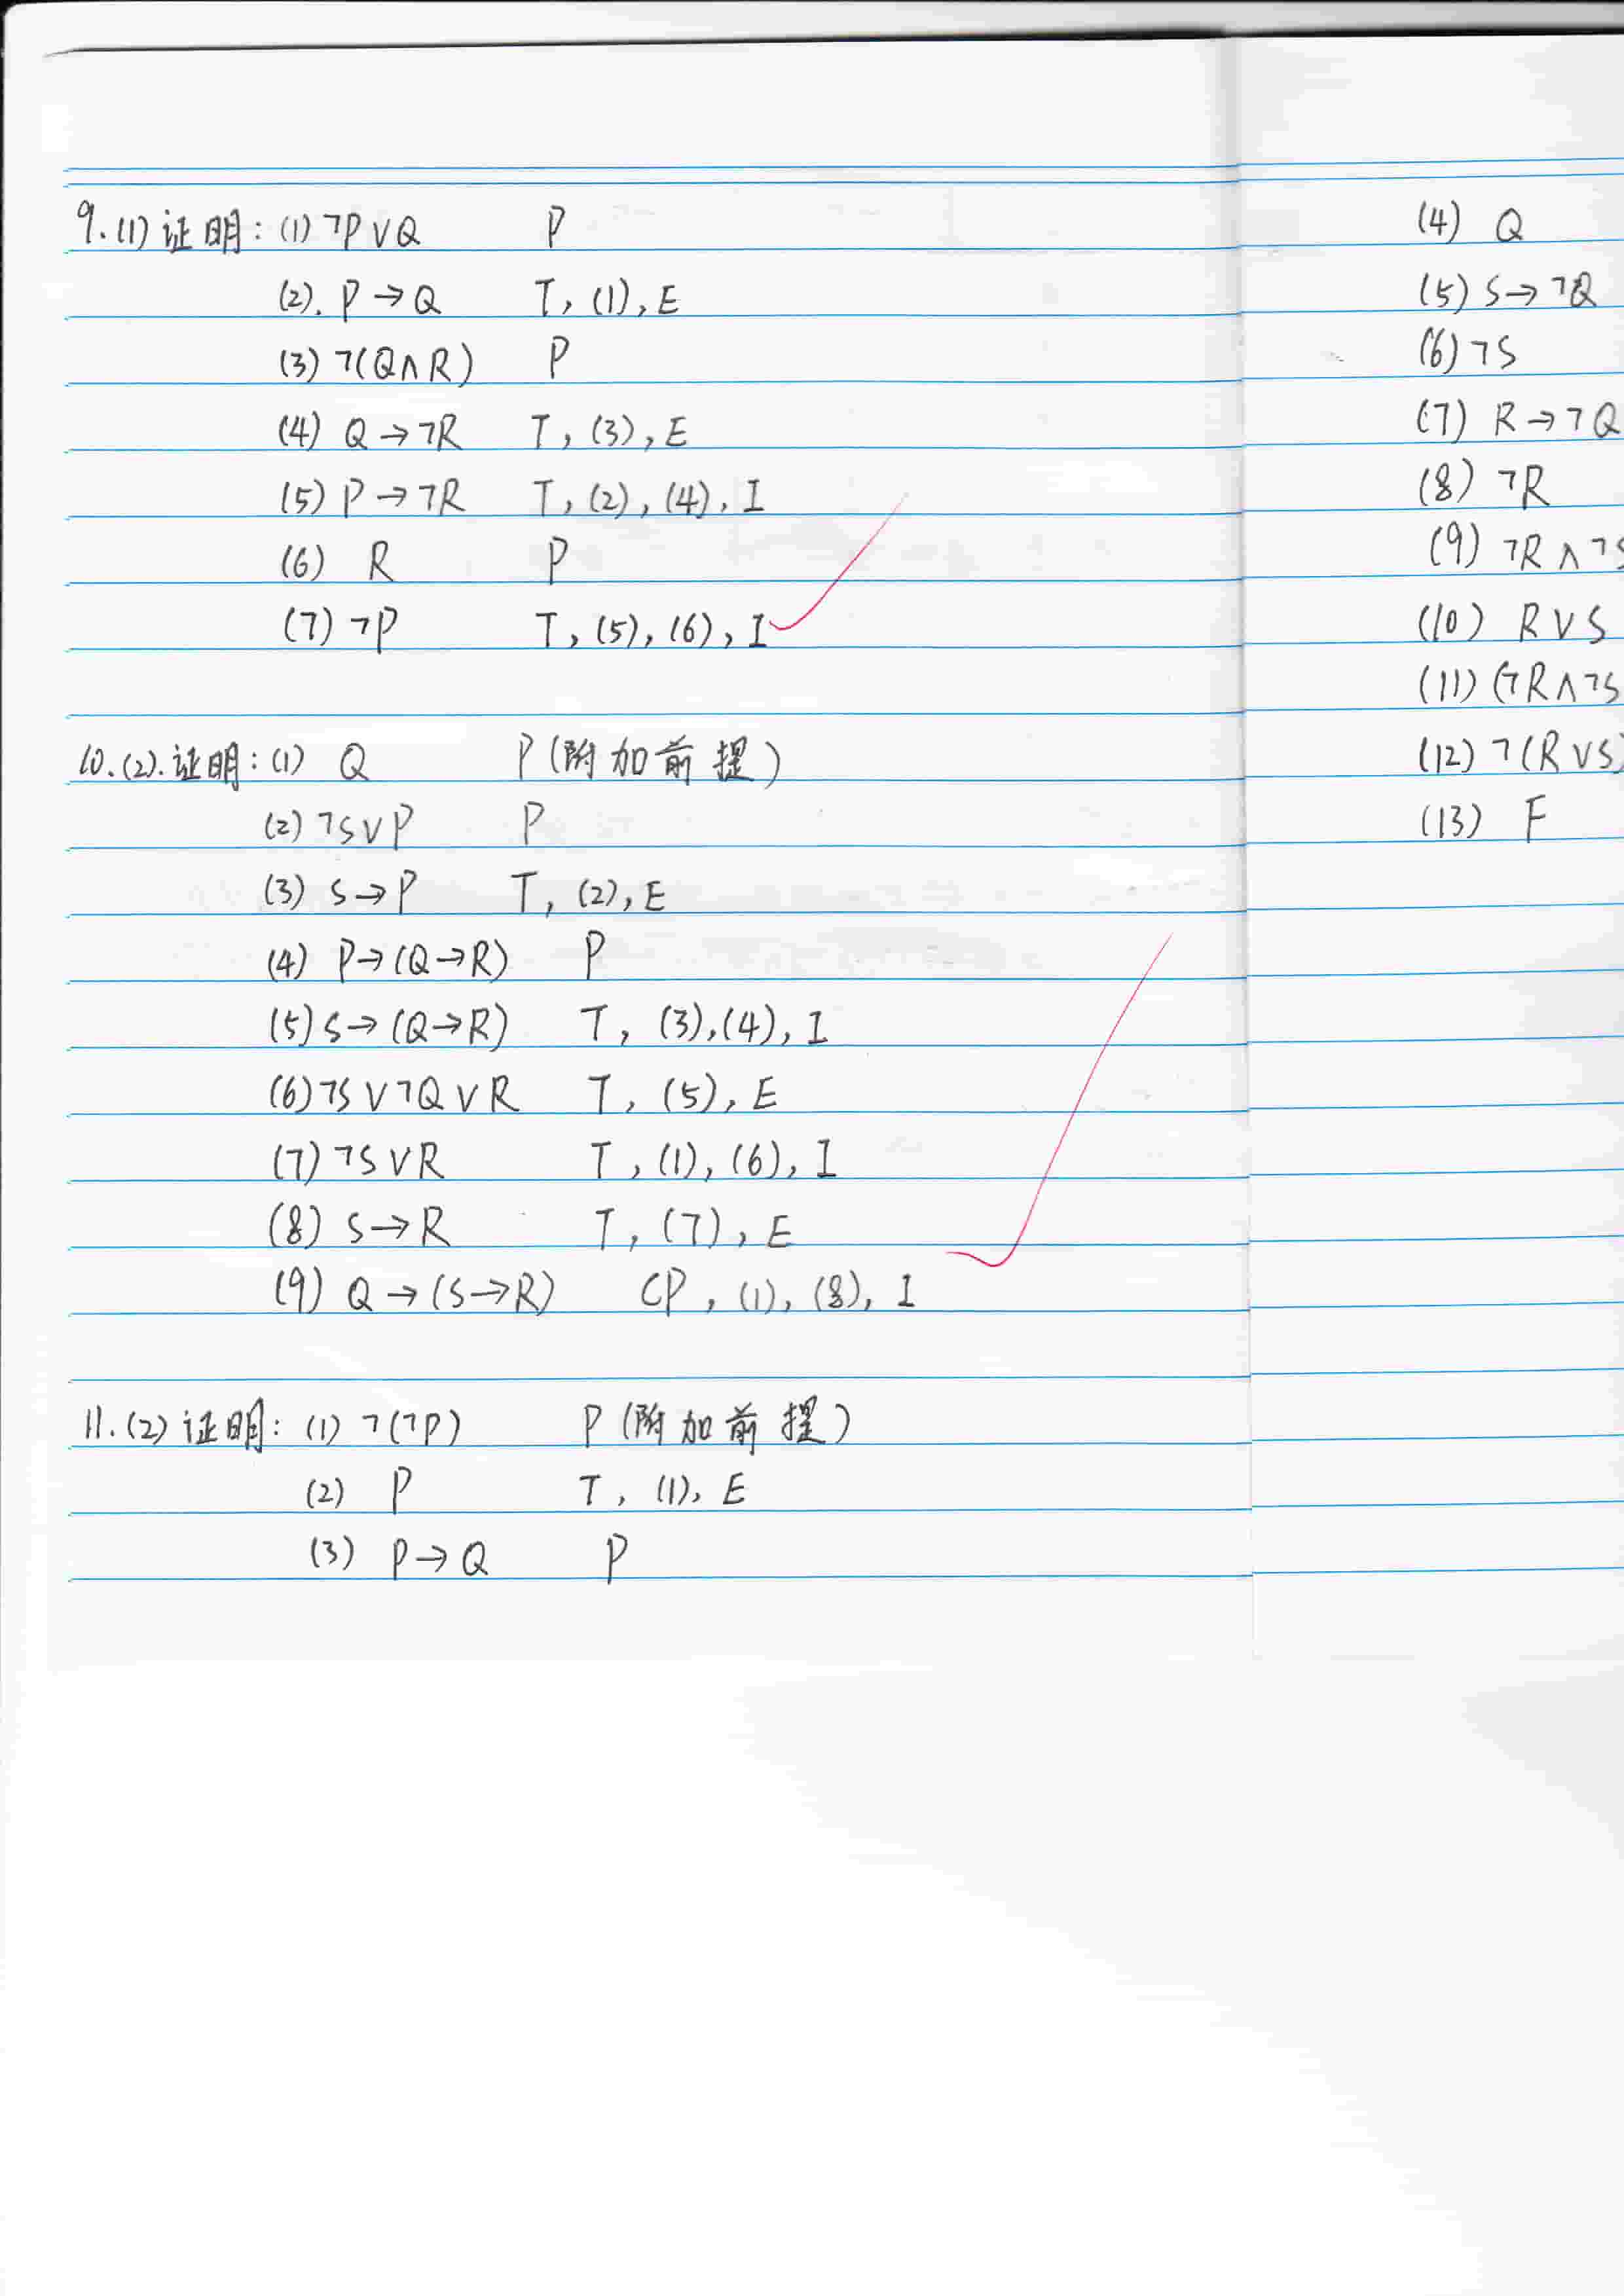 9.(1)证明:(1)¬P∨Q P
(2). P→Q T,(1),E
(3)¬(Q∧R) P
(4) Q→¬R T,(3),E
(5) P→¬R T,(2),(4),I
(6) R P
(7)¬P T,(5),(6),I
10.(2).证明:(1) Q P(附加前提)
(2)¬S∨P P
(3) S→P T,(2),E
(4) P→(Q→R) P
(5) S→(Q→R) T,(3),(4),I
(6)¬S∨¬Q∨R T,(5),E
(7)¬S∨R T,(1),(6),I
(8) S→R T,(7),E
(9) Q→(S→R) CP,(1),(8),I
11.(2)证明:(1)¬(¬P) P(附加前提)
(2) P T,(1),E
(3) P→Q P
(4) Q
(5) S→¬Q
(6)¬S
(7) R→¬Q
(8)¬R
(9)¬R∧¬S
(10) R∨S
(11)(¬R∧¬S
(12)¬(R∨S)
(13) F